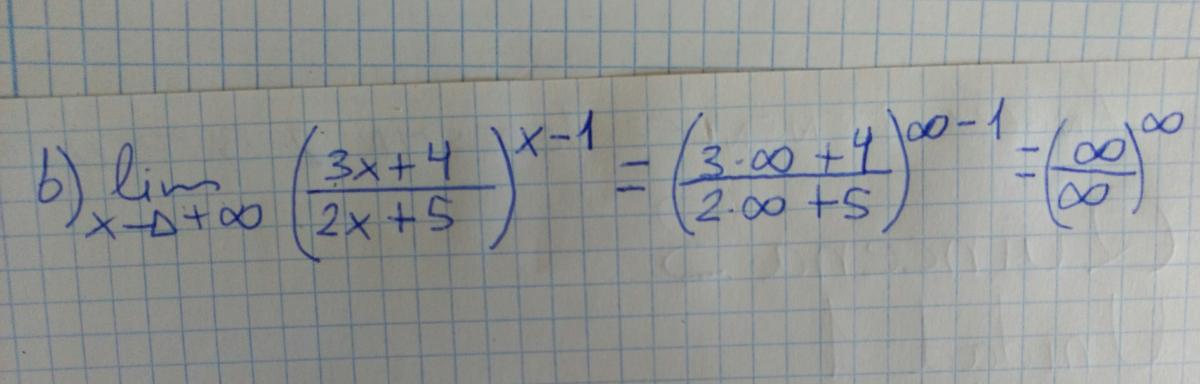 b) lim x→+∞ ((3x+4)/(2x+5))^(x-1) = ((3·∞+4)/(2·∞+5))^(∞-1) = (∞/∞)^∞